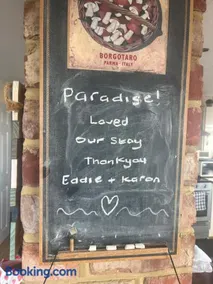 BORGOTARO
PARMA - ITALY
Paradise!
Loved
our stay
Thankyou
Eddie + Karon
Booking.com